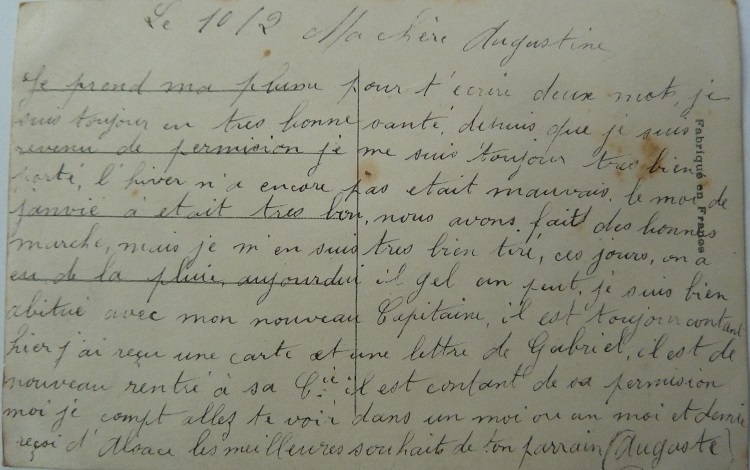 Le 10/2 Ma chère Augustine
Je prend ma plume pour t'écrire deux mot, je
suis toujour en tres bonne santé, depuis que je suis
revenu de permision je me suis toujour tres bien
porté, l'hiver n'a encore pas etait mauvais. le moi de
janvié à etait tres bon, nous avons fait des bonnes
marche, mais je m'en suis tres bien tiré, ces jours, on a
eu de la pluie, aujourdui il gel un peut, je suis bien
abitué avec mon nouveau Capitaine, il est toujour contant
hier j'ai reçu une carte et une lettre de Gabriel, il est de
nouveau rentré à sa Cie il est contant de sa permision
moi je compt allez te voir dans un moi ou un moi et demie
reçoi d'Alsace les meilleures souhaits de ton parrain (Auguste)
Fabriqué en France